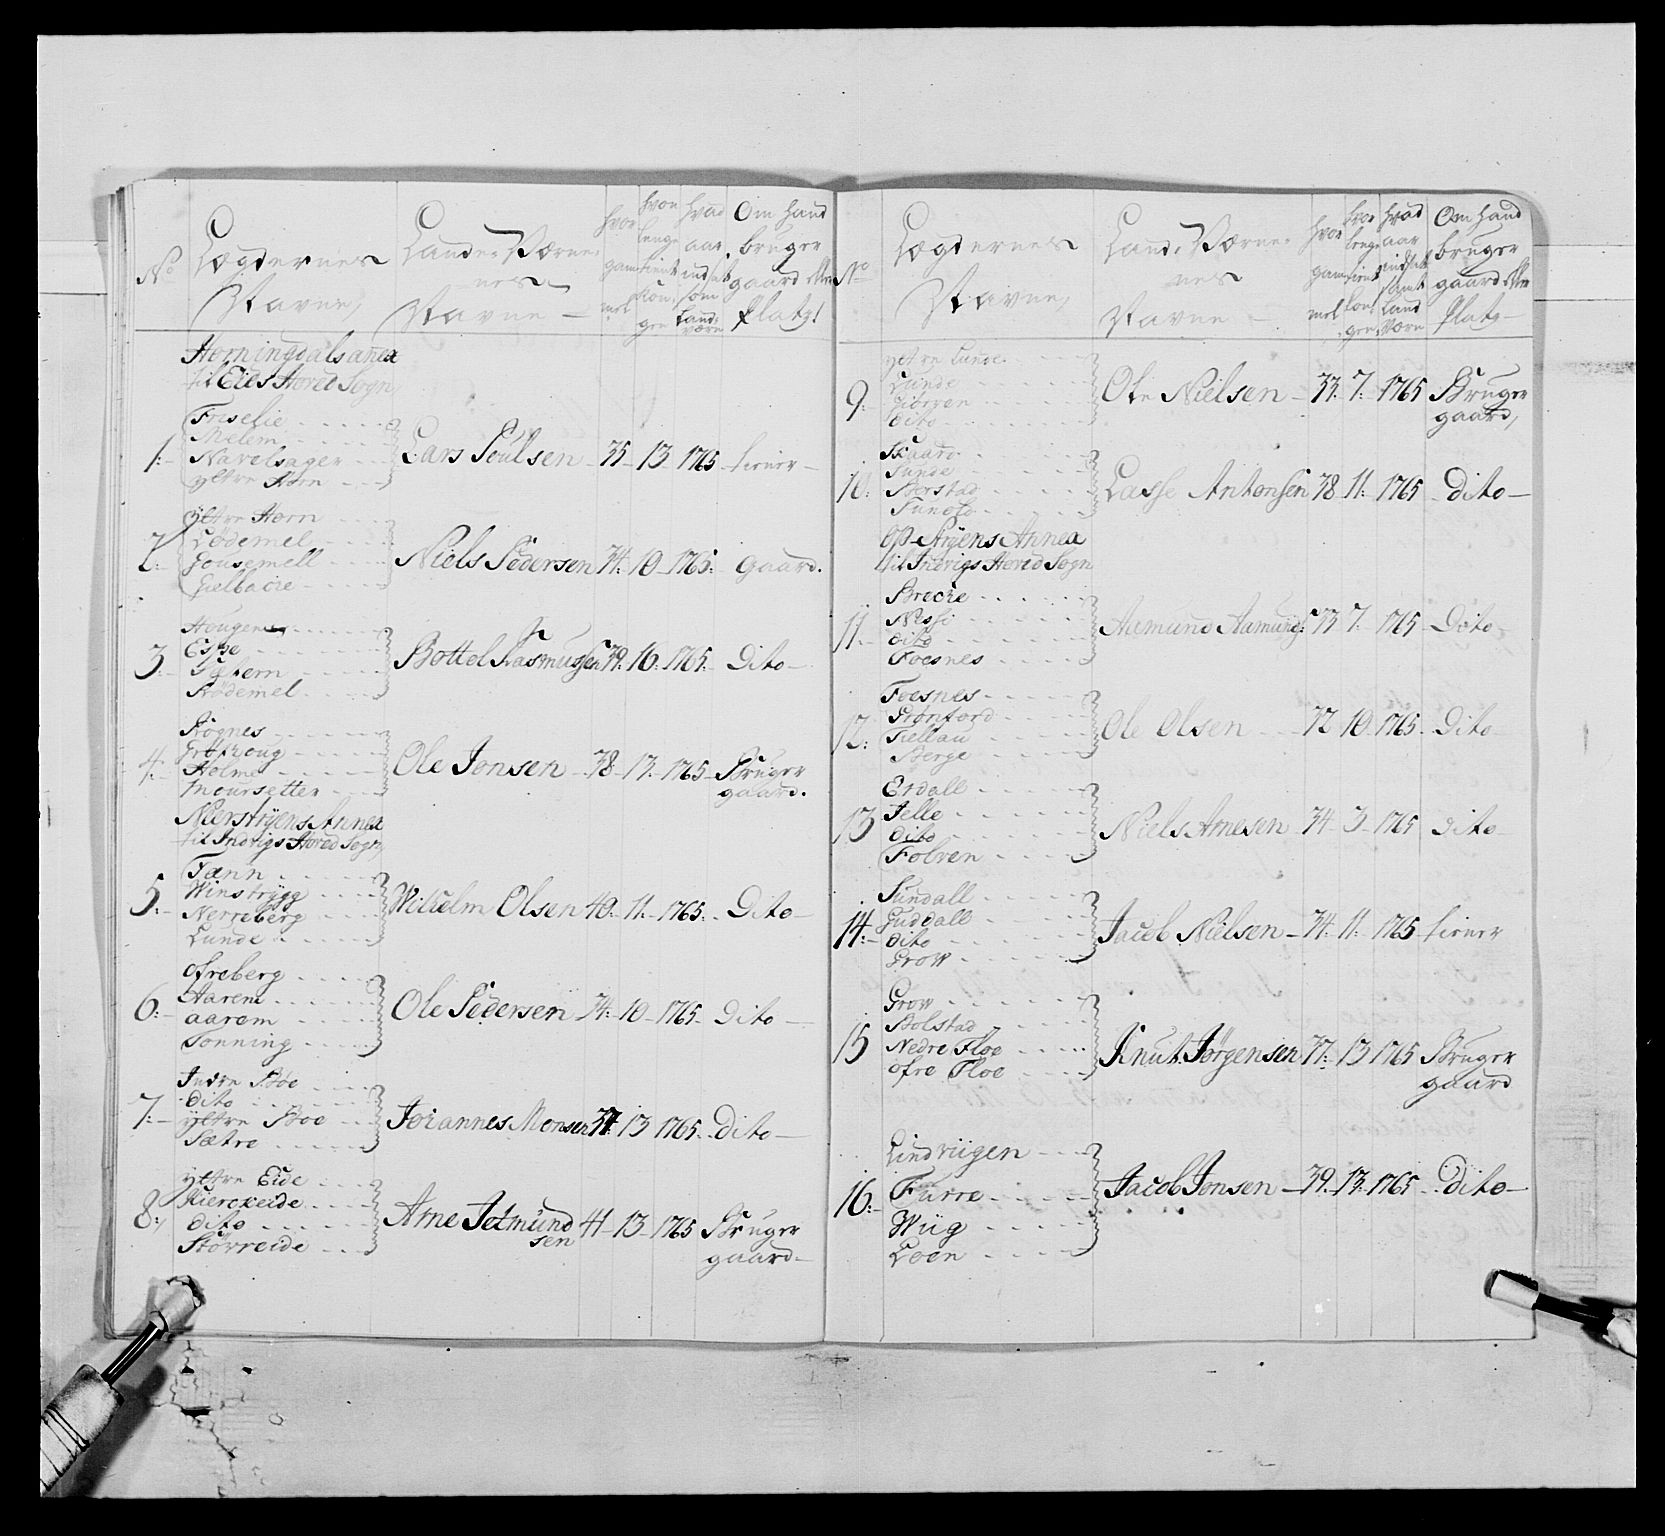 No
Lægdernes
Navne,
Lands Værne-
nes
Navne
hvor
gam
mel
hvor
lenge
tient
Kon-
gen
hvad
aar
indsat
som
Land-
værn
Om hand
bruger
gaard eller
Platz!
Horningdals anex
til Eids Hored Sogn
1:
Friselie
Melem
Navelsager
ÿttre Horn
Lars Poulsen 35 13 1765 tiener
2:
ÿttre Horn
Lødemel
Gousemell
Gielbacke
Niels Pedersen 34 10 1765 gaard.
3
Hougen
Espe
Stødemel
Bottel Rasmussen 39 16 1765 Dito
4
Røgnes
Holme
Moursetter
Ole Jonsen 38 13 1765 Bruger
gaard.
Nierstryens Annex
til Indvigs Hored Sogn
5
Tænn
Winstrÿgg
Nerreberg
Lunde
Wilhelm Olsen 40 11 1765 Dito
6
ofreberg
Aarem
aarem
Sonning
Ole Pedersen 34 10 1765 Dito
7
Indre Bøe
dito
ÿttre Boe
Sætre
Johannes Monsen 37 13 1765 Dito
8
ÿttre Eide
Kierckeide
dito
Størreide
Arne Jetmund
sen
41 13 1765 Bruger
gaard
No
Lægdernes
Navne,
Lands Værne-
nes
Navne
hvor
gam
mel
hvor
lenge
tient
kon-
gen
hvad
aar
indsat
samt
Land
Værn
Om hand
bruger
gaard eller
Platz
9
ÿttre Lunde
Lunde
Giørven
dito
Ole Nielsen 33 7 1765 Bruger
gaard,
10
Skaard
Sunde
Borstad
Tunold
Lasse Antonsen 38 11 1765 Dito
Op-Stryens Annex
til Indvigs Hored Sogn
11
Brecke
Messi
dito
Foesnes
Aamund Aamunds: 33 7 1765 Dito
12
Foesnes
Prønford
Tiellau
Berge
Ole Olsen 32 10 1765 Dito
13
Erdall
Jelle
dito
Folven
Niels Arnesen 34 3 1765 dito
14
Sundall
Guddall
dito
Grow
Jacob Nielsen 34 11 1765 tiener
15
Grow
Bolstad
Nedre Floe
ofre Floe
Knut Jørgensen 37 13 1765 Bruger
gaard
16
Lindviigen
Furre
Wiig
Loen
Jacob Jonsen 39 13 1765 Dito